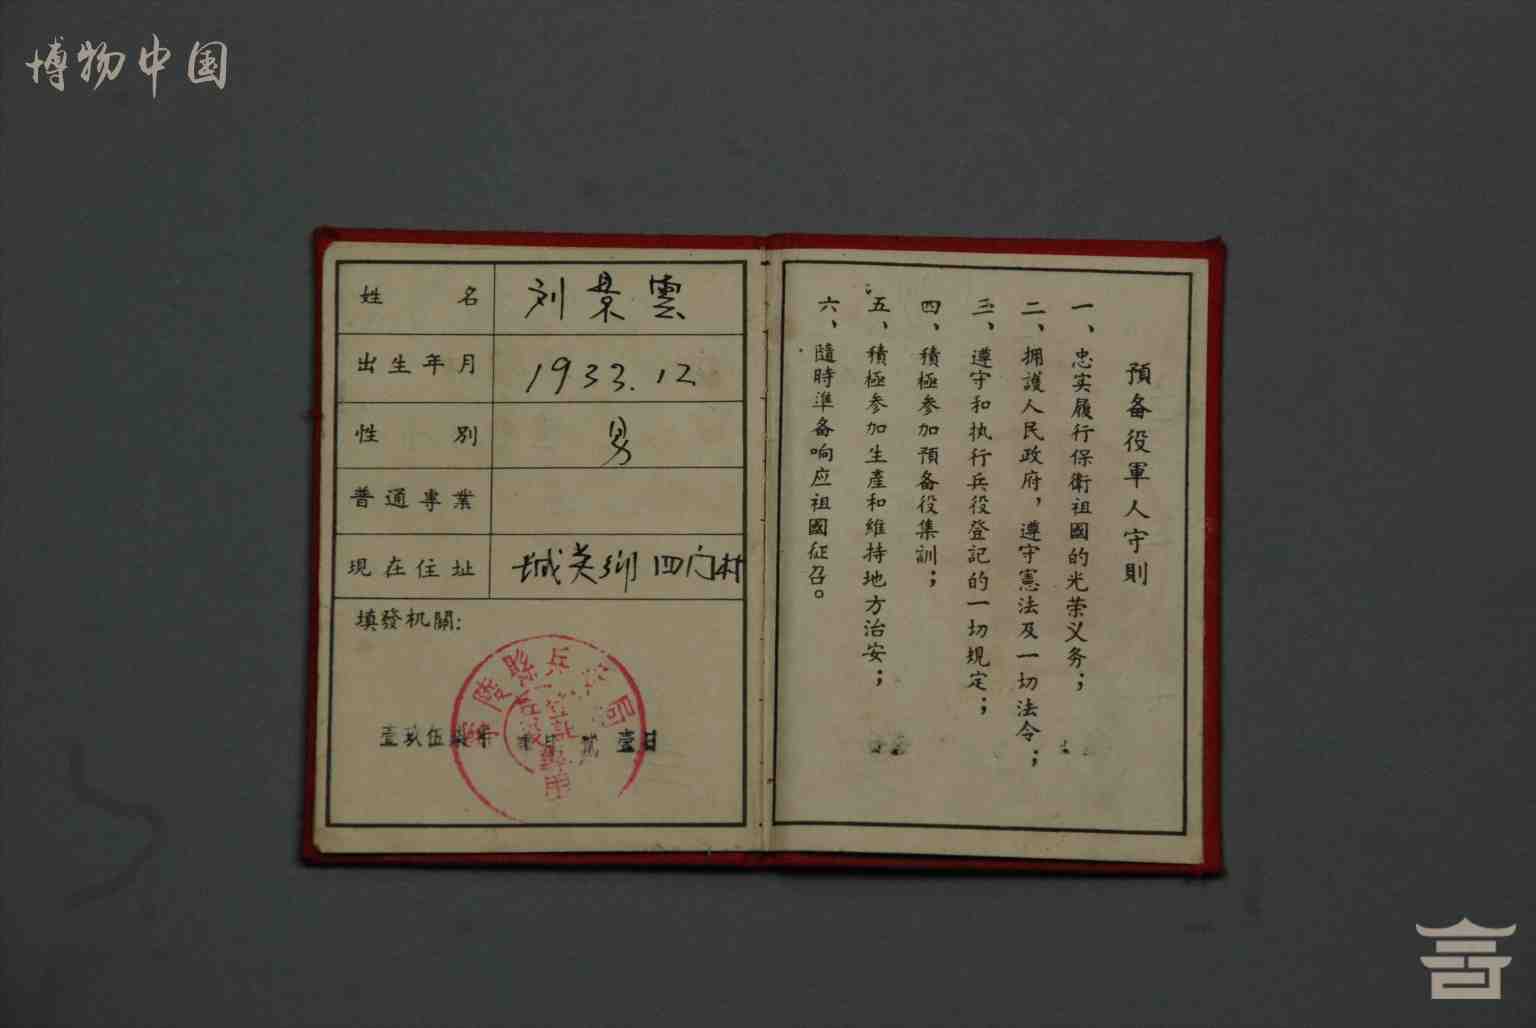 博物中国
姓名 刘景雲
出生年月 1933.12
性别 男
普通專業
現在住址 城关鄉四门村
填發机關:
陵縣兵役局
壹玖伍柒年 月 壹日
預备役軍人守則
一、忠实履行保衛祖國的光荣义务；
二、拥護人民政府，遵守憲法及一切法令；
三、遵守和执行兵役登記的一切規定；
四、積極参加預备役集訓；
五、積極参加生產和維持地方治安；
六、隨時準备响应祖國征召。